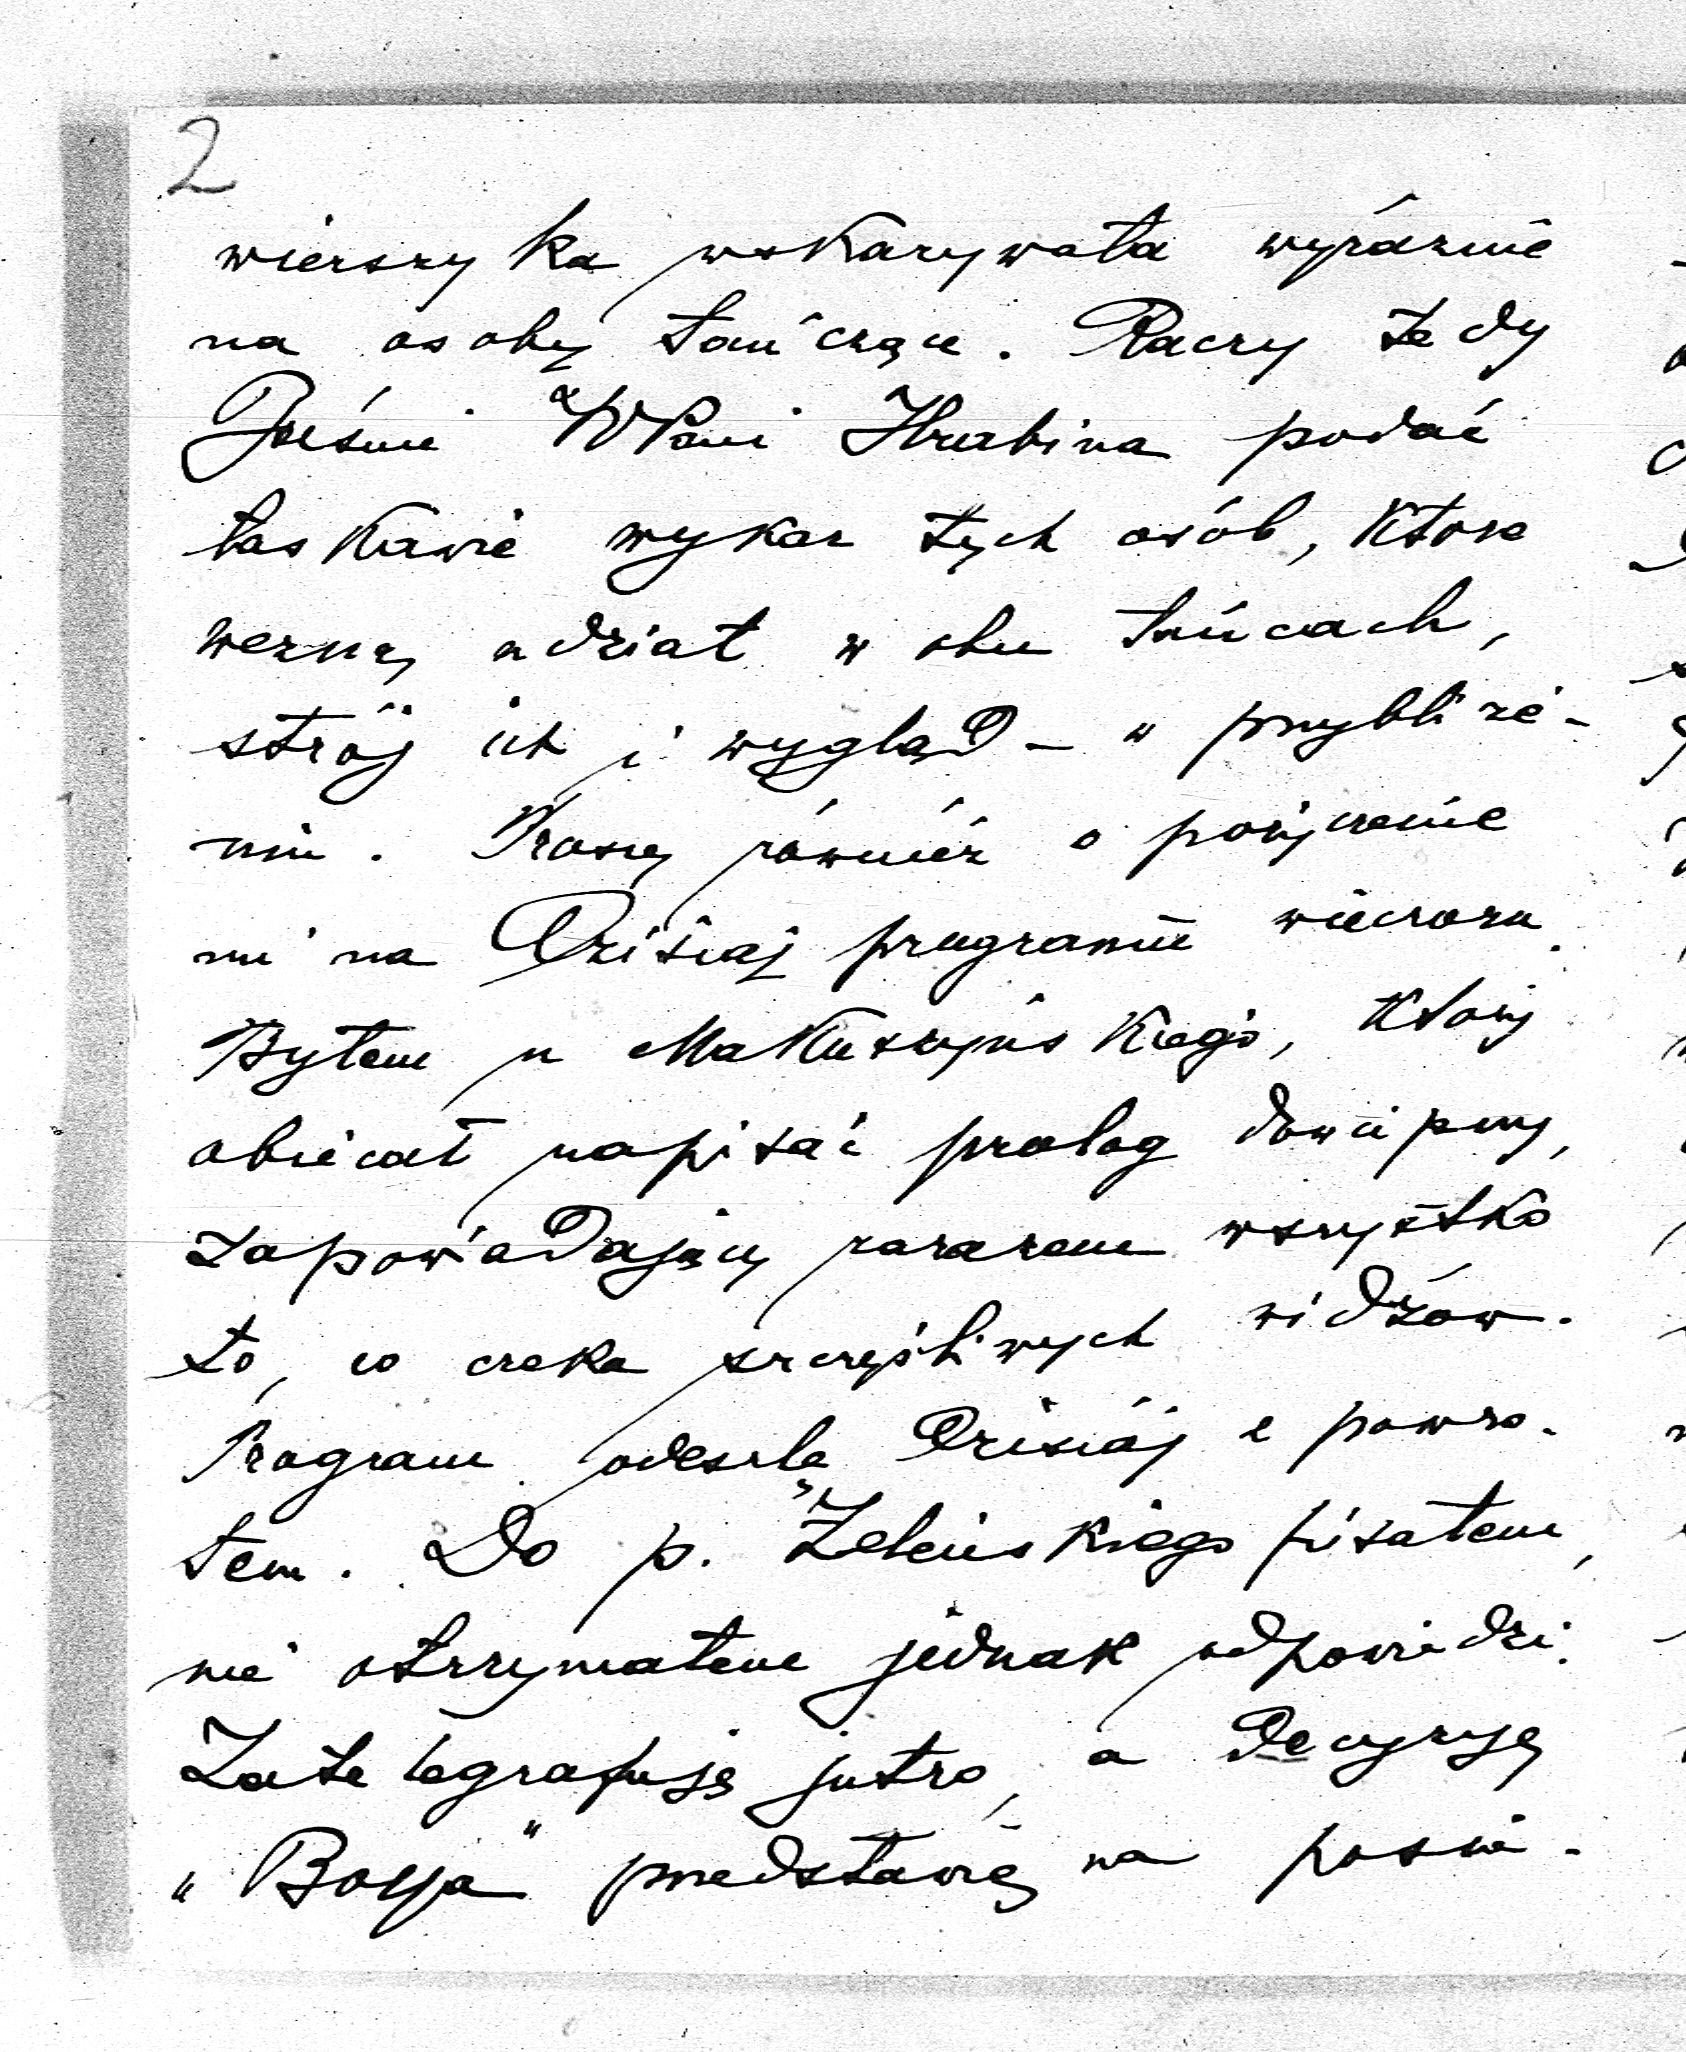 2
wierszyka wskazywała wyraźnie
na osoby tańczące. Raczy tedy
Jaśnie WPani Hrabina podać
łaskawie wykaz tych osób, które
wezmą udział w obu tańcach,
strój ich i wygląd – w przybliże-
niu. Proszę również o pożyczenie
mi na dzisiaj programu wieczoru.
Byłem u Makuszyńskiego, który
obiecał napisać prolog dowcipny,
zapowiadający zarazem wszystko
to, co czeka szczęśliwych widzów.
Program odeszlę dzisiaj z powro-
tem. Do p. Żeleńskiego pisałem,
nie otrzymałem jednak odpowiedzi.
Zatelegrafuję jutro, a decyzję
„Boya” przedstawię na posie-